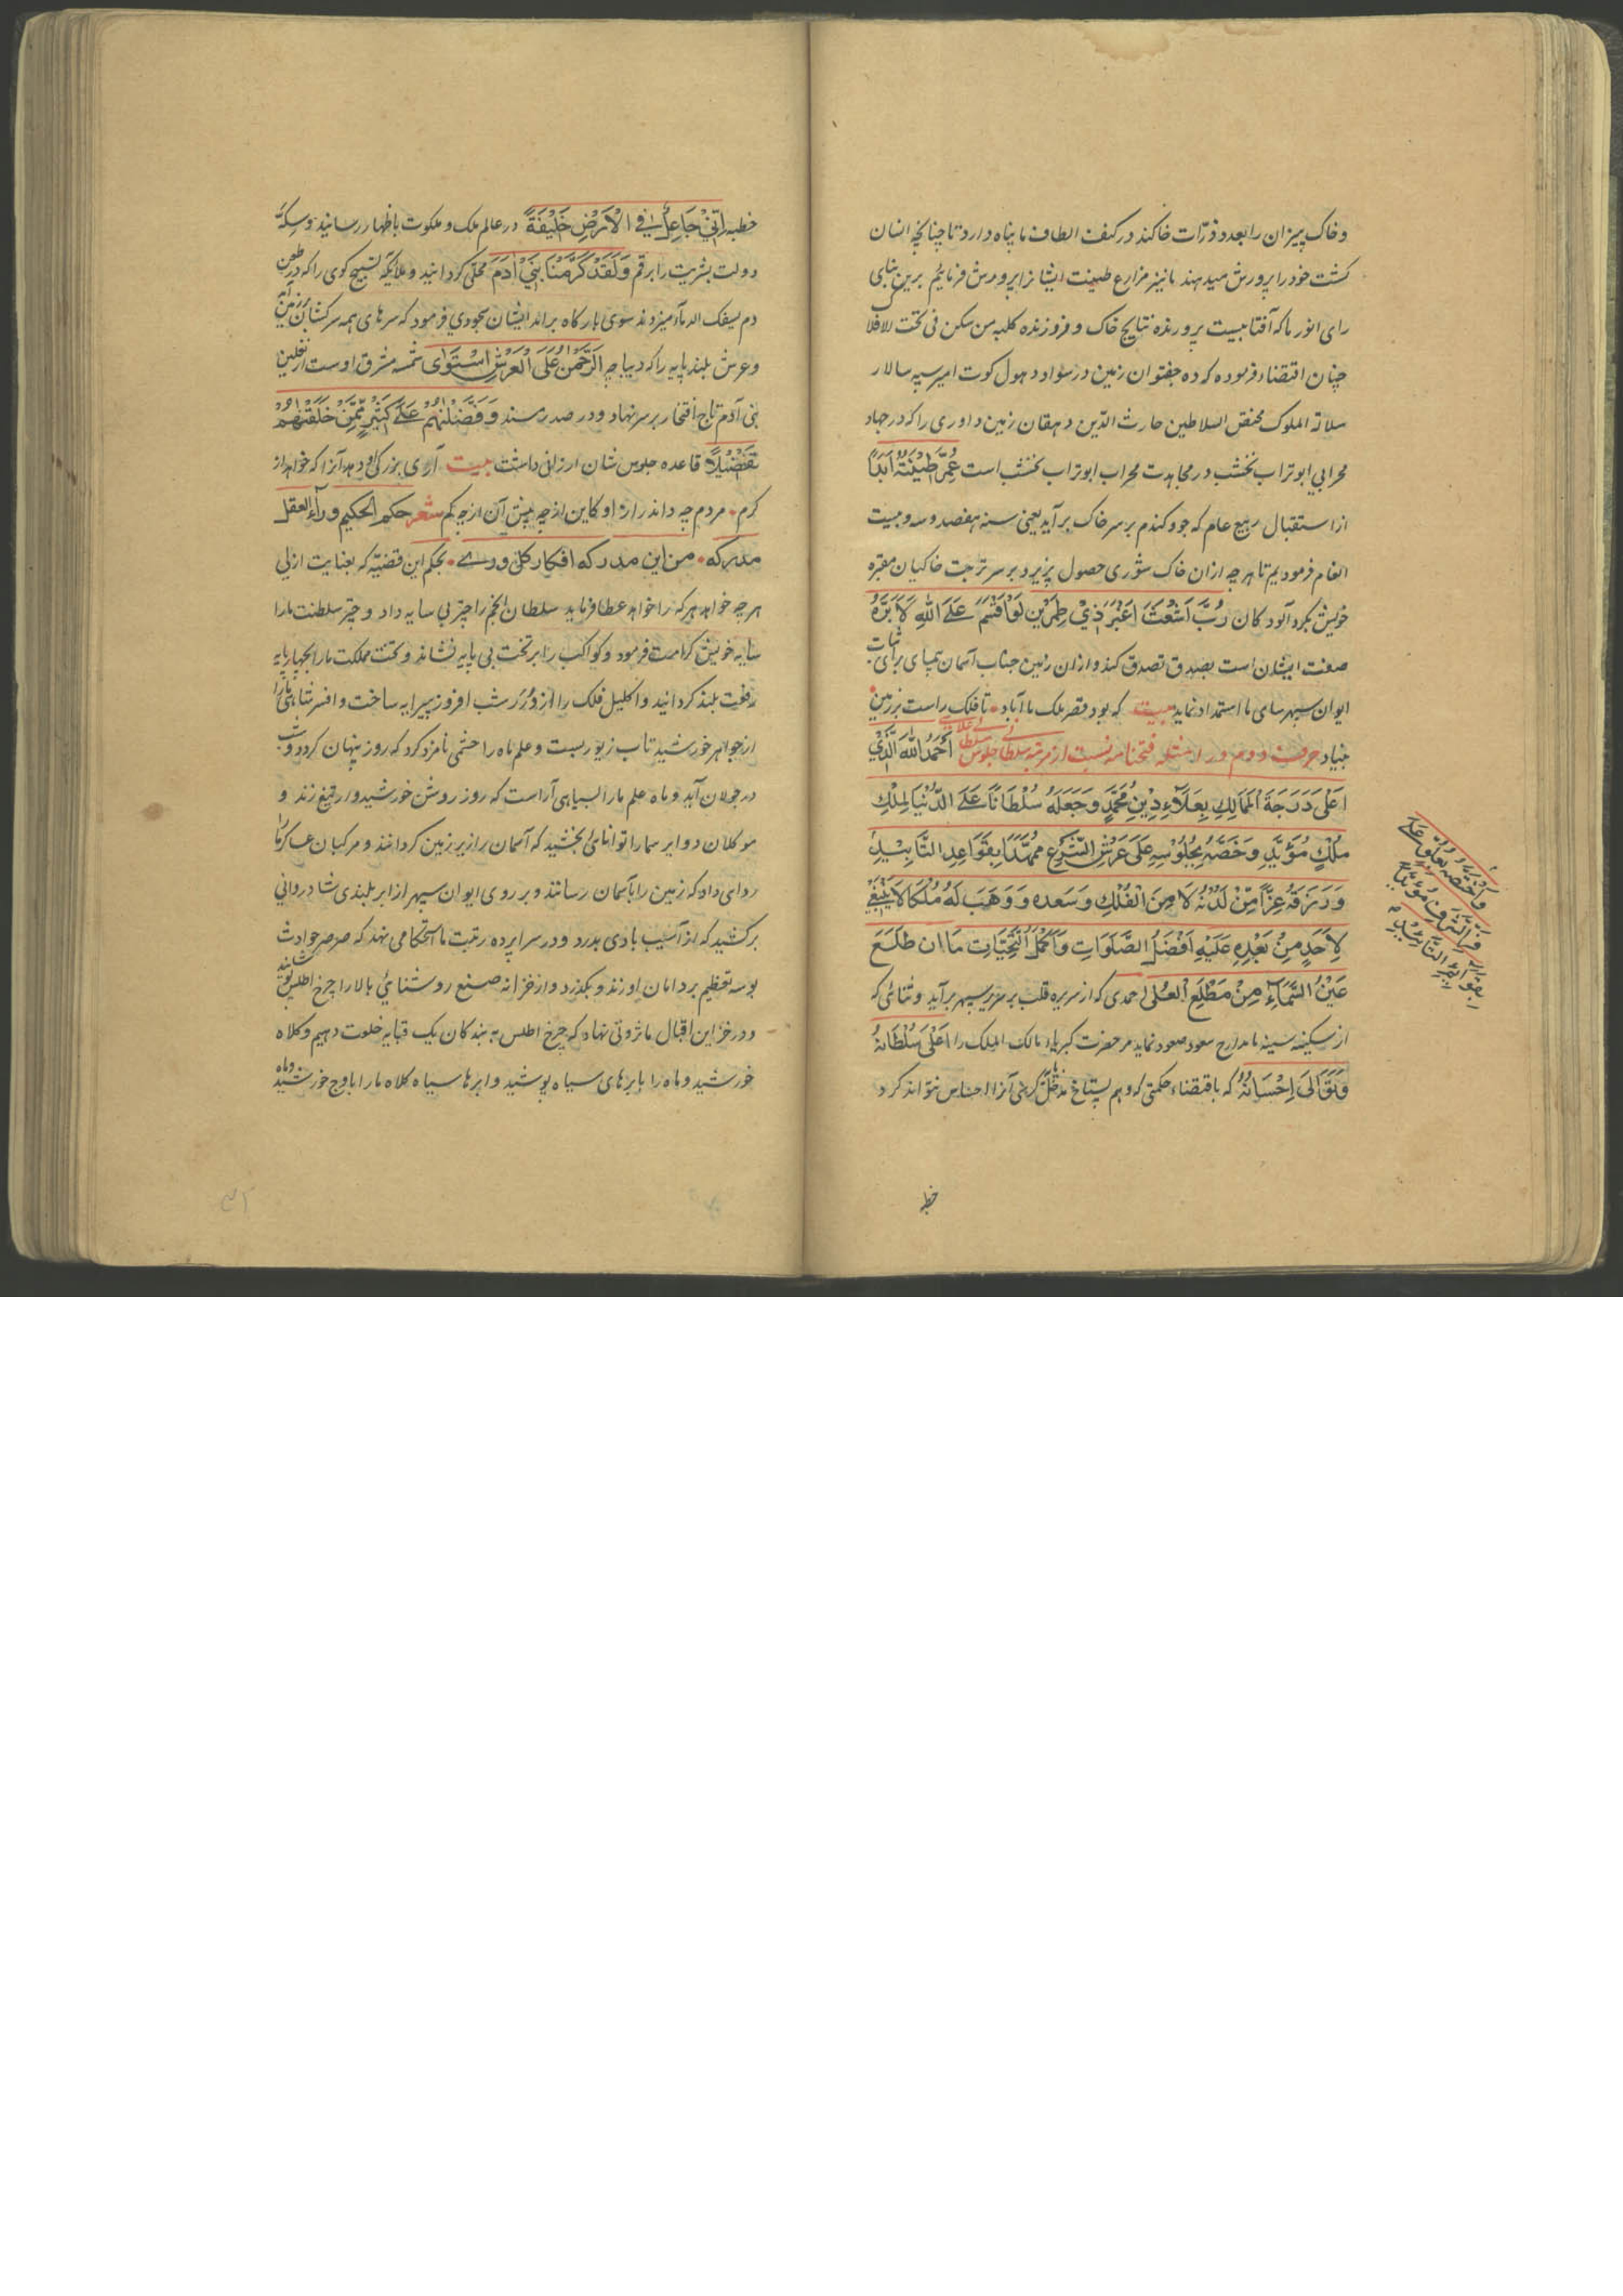 و خاک پیزان را بعدد ذرّات خاکند در کنف الطاف ما پناه دارد تا چنانچه انسان
کشت خود را پرورش میدهند ما نیز مزارع طینت ایشانرا پرورش فرمائیم برین بنای
رای انور ما که آفتابیست پرورنده نتایج خاک و فروزنده کلبه من سکن فی تحت الافلاک
چنان اقتضاء فرموده که ده جفتوان زمین در سواد دهول کوت امیر سپه سالار
سلالة الملوک مختص السلاطین حارث الدّین دهقان زمین داوری را که در جهاد
محرابی ابو تراب نخشب در مجاهدت محراب ابو تراب نخشب است عُمِّرَ طِینَتُهُ اَبَدًا
از استقبال ربیع عام که جو و کندم بر سر خاک برآید یعنی سنه هفصد و سه و بیست
انعام فرمودیم تا هر چه ازان خاک شوری حصول پزیرد بر سر تربت خاکیان مقبره
خویش بکرد آلود کان رُبَّ اَشْعَثَ اَغْبَرَ ذِیْ طِمْرَیْنِ لَوْ اَقْسَمَ عَلَی اللّٰهِ لَاَبَرَّهُ
صفت ایشان است بصدق تصدق کند و ازان زمین جناب آسمان پیمای برای ثبات
ایوان سپهر سای ما استمداد نماید بیت که بود قصر ملک ما آباد • تا فلک راست بر زمین
بنیاد حرف دوم در امثله فتحنامه نسبت از مرتبه سلطانی جلوس سلطان علائی اَلْحَمْدُ لِلّٰهِ الَّذِیْ
اَعْلٰی دَرَجَةَ الْمَمَالِكِ بِعَلَاءِ دِیْنِ مُحَمَّدٍ وَجَعَلَهُ سُلْطَانًا عَلَی الدُّنْیَا لِمِلْكِ
مُلْكٍ مُؤَیَّدٍ وَخَصَّهُ بِجُلُوْسِهِ عَلٰی عَرْشِ الشَّرْعِ مُمَهَّدًا بِقَوَاعِدِ التَّابِیْدِ
وَرَزَقَهُ عِزًّا مِّنْ لَدُنْهُ لَا مِنَ الْفُلْكِ وَسَعْدِهِ وَوَهَبَ لَهُ مُلْكًا لَا یَنْبَغِیْ
لِاَحَدٍ مِنْ بَعْدِهِ عَلَیْهِ اَفْضَلُ الصَّلَوَاتِ وَاَكْمَلُ التَّحِیَّاتِ مَا اِنْ طَلَعَ
عَیْنُ السَّمَاءِ مِنْ مَطْلَعِ الْعُلٰی حمدی که از سریره قلب بر سریر سپهر برآید و ثنائی که
از سکینه سینه ما مدارج سعود صعود نماید مر حضرت کبریاء مالک الملک را اَعْلٰی سُلْطَانَهُ
وَتَوَالٰی اِحْسَانُهُ که باقتضاء حکمتی که وهم پستاخ مدخل کری آنرا احساس نتواند کرد
خطبه
خطبه اِنِّیْ جَاعِلٌ فِی الْاَرْضِ خَلِیْفَةً در عالم ملک و ملکوت باظهار رسانید و سکّهٔ
دولت بشریت را برقم وَلَقَدْ كَرَّمْنَا بَنِیْ اٰدَمَ محلی کردانید و ملایکهٔ تسبیح کوی را که در طعن
دم یسفک الدماء میزدند سوی بارکاه براند ایشان سجودی فرمود که سرهای همه سرکشان بر زمین آمد
و عرش بلند پایه را که دیباچه اَلرَّحْمٰنُ عَلَی الْعَرْشِ اسْتَوٰی شمسه مشرق اوست از نعلین
بنی آدم تاج افتخار بر سر نهاد و در صدر مسند وَفَضَّلْنٰهُمْ عَلٰی كَثِیْرٍ مِّمَّنْ خَلَقْنٰهُمْ
تَفْضِیْلًا قاعده جلوس شان ارزانی داشت بیت آری بزرکی او دهد آنرا که خواهد از
کرم • مردم چه داند راز او کاین از چه بیش آن از چه کم شعر حكم الحكیم وراء العقل
مدركه • من این مدركه افكار كل وری • بحکم این قضیّه که بعنایت ازلی
هر چه خواهد هر که را خواهد عطا فرماید سلطان انجم را چتر بی سایه داد و چتر سلطنت ما را
سایه خویش کرامت فرمود و کواکب را بر تخت بی پایه نشاند و تخت مملکت ما را بچهار پایه
رفعت بلند کردانید و اکلیل فلک را از دُرَر شب افروز پیرایه ساخت و افسر شاهی ما را
از جواهر خورشید تاب زیور بست و علم ماه را حشمی نامزد کرد که روز پنهان کردد و شب
در جولان آید و ماه علم ما را بسپاهی آراست که روز روشن خورشیدوار تیغ زند و
موکلان دوایر سما را توانائی بخشید که آسمان را زیر زمین کردانند و مرکبان عساکر ما را
روانی داد که زمین را بآسمان رسانند و بر روی ایوان سپهر از ابر بلندی شادروانی
برکشید که از آسیب بادی بدرد و در سرا پرده رتبت ما استحکامی نهد که صرصر حوادث
بوسه تعظیم بر دامان او زند و بکذرد و از خزانه صنع روشنائی بالا را چرخ اطلس پوشانید
و در خزاین اقبال ما ثروتی نهاد که چرخ اطلس به بندکان یک قبایه خلوت دهیم و کلاه
خورشید و ماه را بابرهای سیاه پوشید و ابرها سیاه کلاه ما را با اوج خورشید و ماه